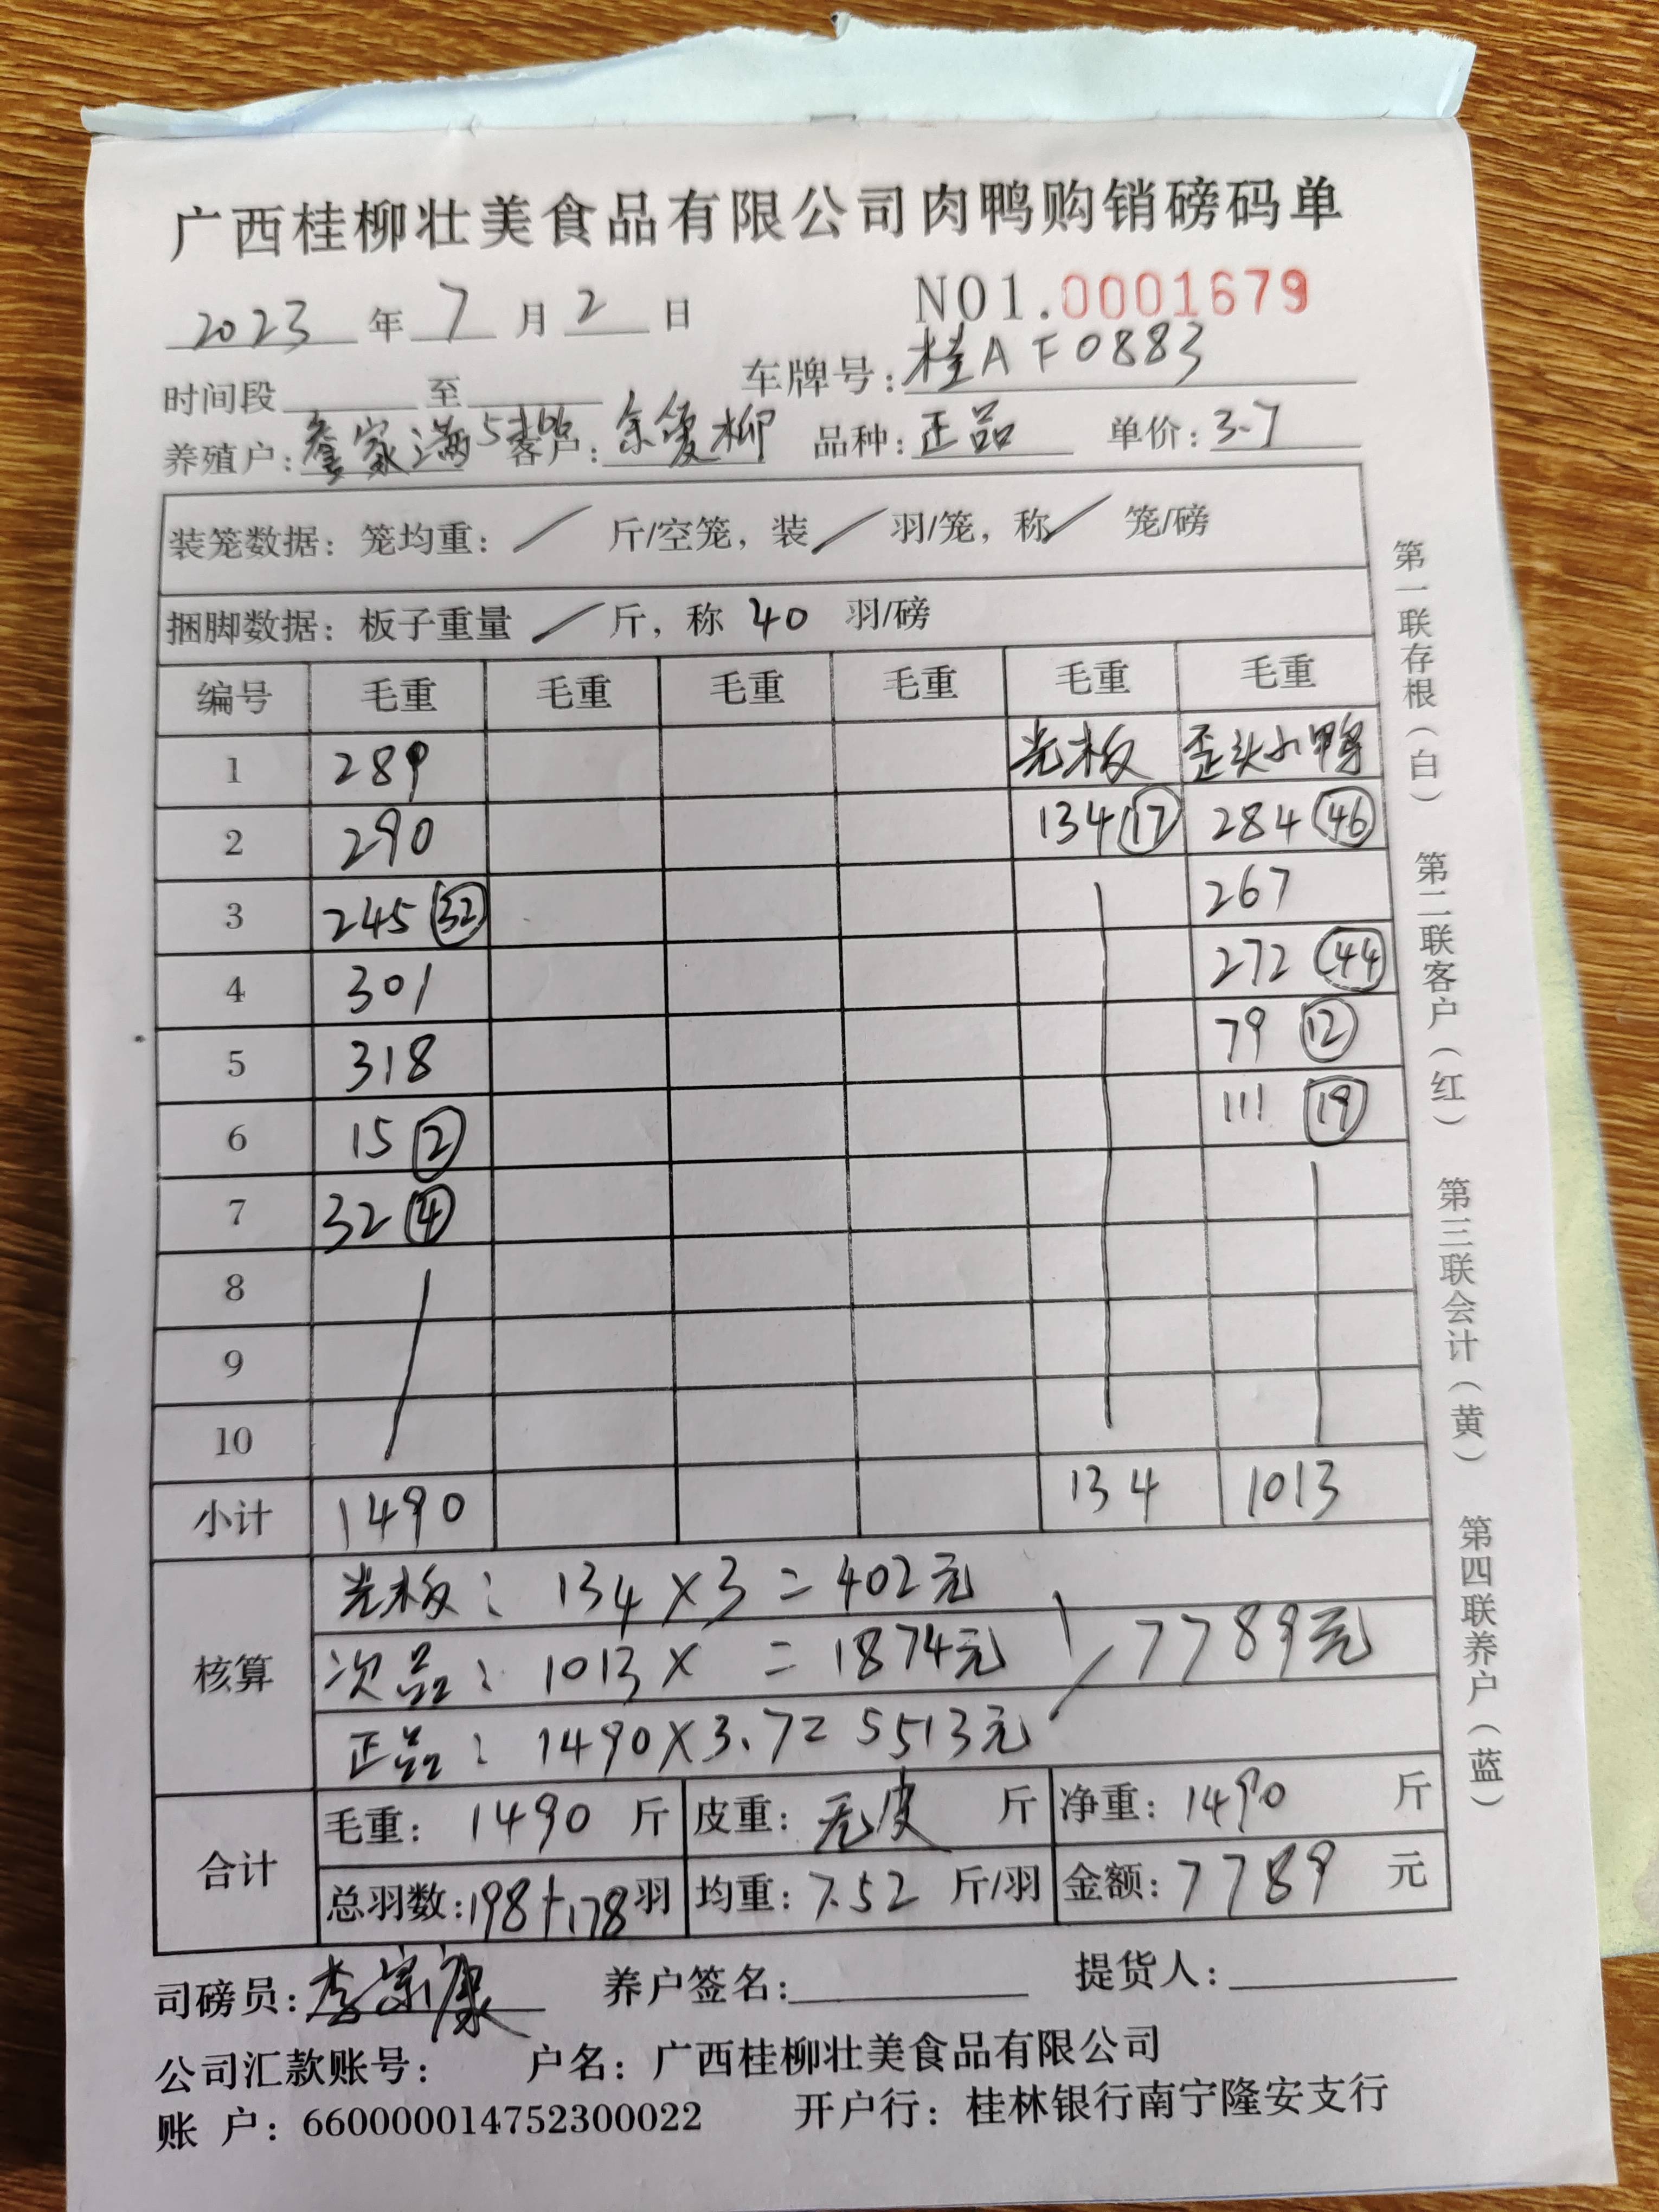 广西桂柳壮美食品有限公司肉鸭购销磅码单
2023 年 7 月 2 日 NO1.0001679
时间段 至 车牌号: 桂A F0883
养殖户: 家满 5 客户: 余 柳 品种: 正品 单价: 3.7
装笼数据: 笼均重: / 斤/空笼, 装 / 羽/笼, 称 / 笼/磅
捆脚数据: 板子重量 / 斤, 称 40 羽/磅
编号 毛重 毛重 毛重 毛重 毛重 毛重
1 289 光板 歪头小鸭
2 290 134 17 284 46
3 245 32 267
4 301 272 44
5 318 79 12
6 15 2 111 19
7 32 4
8
9
10
小计 1490 134 1013
核算
光板: 134×3=402元
次品: 1013× =1874元 7789元
正品: 1490×3.7=5513元
合计
毛重: 1490 斤 皮重: 无皮 斤 净重: 1490 斤
总羽数: 198+178 羽 均重: 7.52 斤/羽 金额: 7789 元
司磅员: 李宗康 养户签名: 提货人:
公司汇款账号: 户名: 广西桂柳壮美食品有限公司
账 户: 660000014752300022 开户行: 桂林银行南宁隆安支行
第一联存根(白) 第二联客户(红) 第三联会计(黄) 第四联养户(蓝)